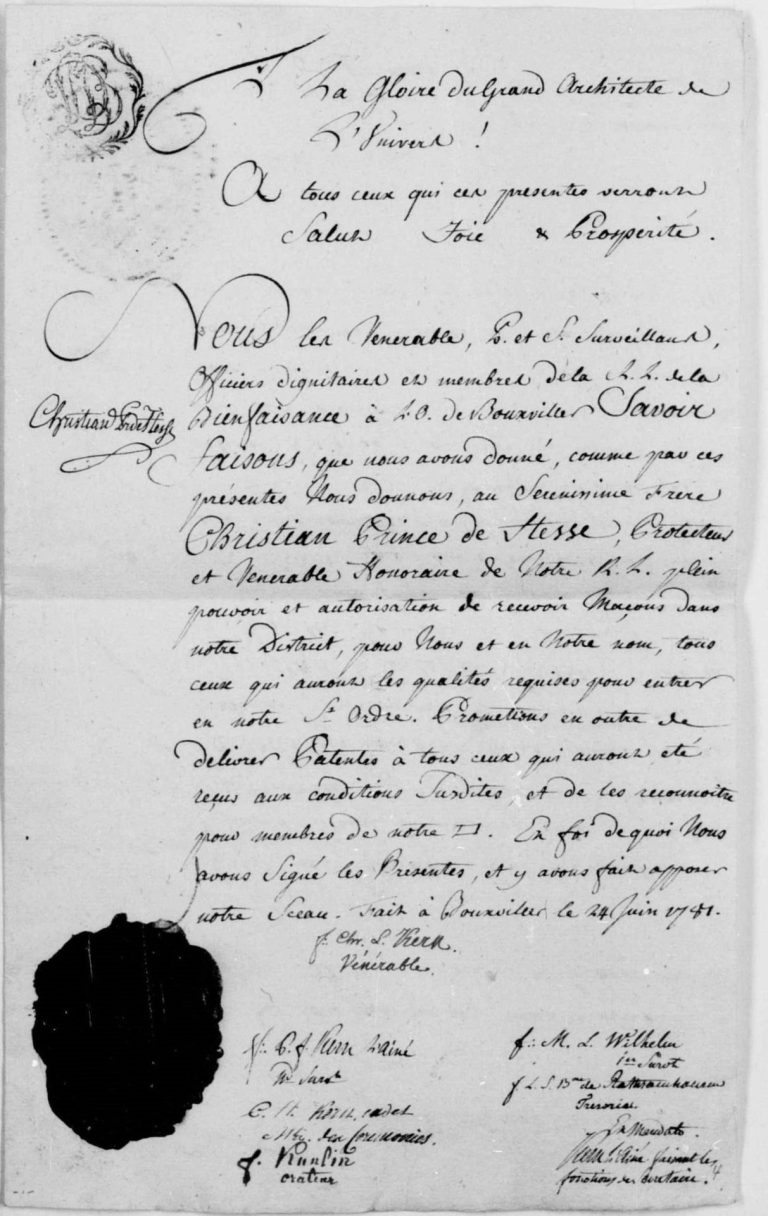 A La Gloire du Grand Architecte de
L'Univers !
A tous ceux qui ces presentes verront
Salut Joie & Prosperité.
Nous les Venerable, P. et S. Surveillants,
Officiers dignitaires et membres de la R. L. de la
Bienfaisance à L'O. de Bouxviller Savoir
faisons, que nous avons donné, comme par ces
présentes Nous donnons, au Serenissime Frere
Christian Prince de Hesse, Protecteur
et Venerable Honoraire de Notre R. L. plein
pouvoir et autorisation de recevoir Maçons dans
notre District, pour Nous et en Notre nom, tous
ceux qui auront les qualités requises pour entrer
en notre St. Ordre. Promettons en outre de
delivrer Patentes à tous ceux qui auront eté
reçus aux conditions Susdites, et de les reconnoitre
pour membres de notre □. En foi de quoi Nous
avons Signé les Presentes, et y avons fait apposer
notre Sceau. Fait à Bouxviller le 24 Juin 1781.
Christian P. de Hesse
f. Chr. L. Kern.
Vénérable.
f: C. f. Kern l'ainé
f: M. L. Wilhelm
1er Survt
f L. S. Bon de Rathsamhausen
Tresorier
C. H. Kern cadet
Mtr. des Ceremonies.
f. Künlin
orateur
Ex Mandato
Kern l'Ainé faisant les
fonctions de Secretaire.